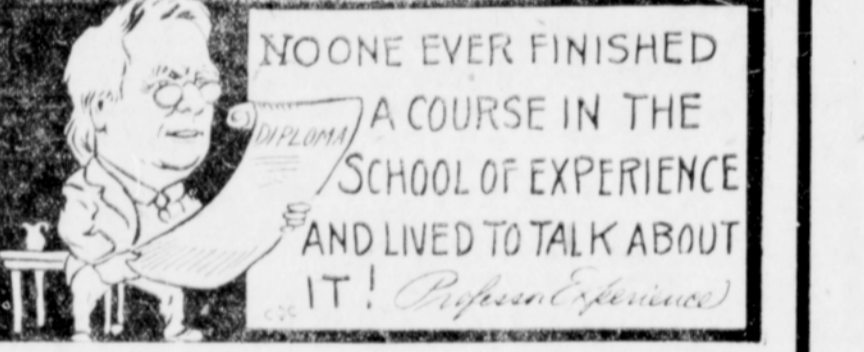 NO ONE EVER FINISHED
DIPLOMA
A COURSE IN THE
SCHOOL OF EXPERIENCE
AND LIVED TO TALK ABOUT
IT! Professor Experience